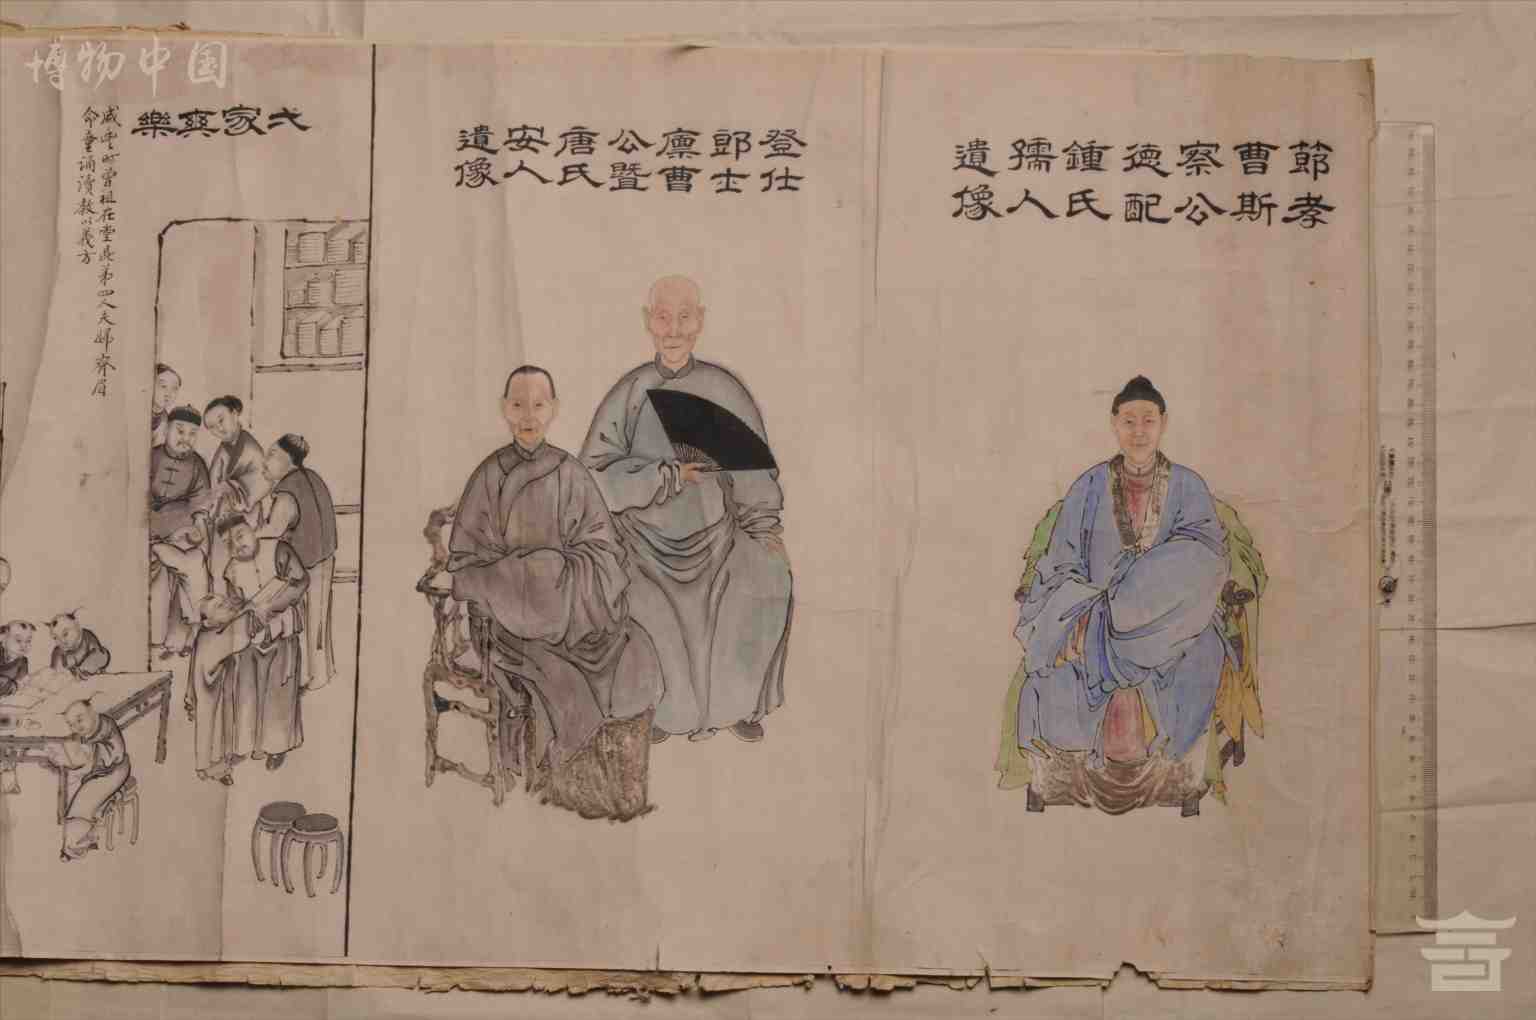 節孝
曹斯
察公
德配
鍾氏
孺人
遺像
登仕
郎士
廪曹
公暨
唐氏
安人
遺像
弌家眞樂
咸豊時曾祖在堂此弟四人夫婦齊眉
命童誦讀教以義方
博物中国